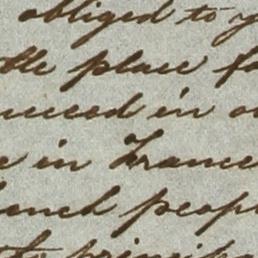 obliged to y
ttle place fo
ucceed in o
e in France
rench peop
to principa